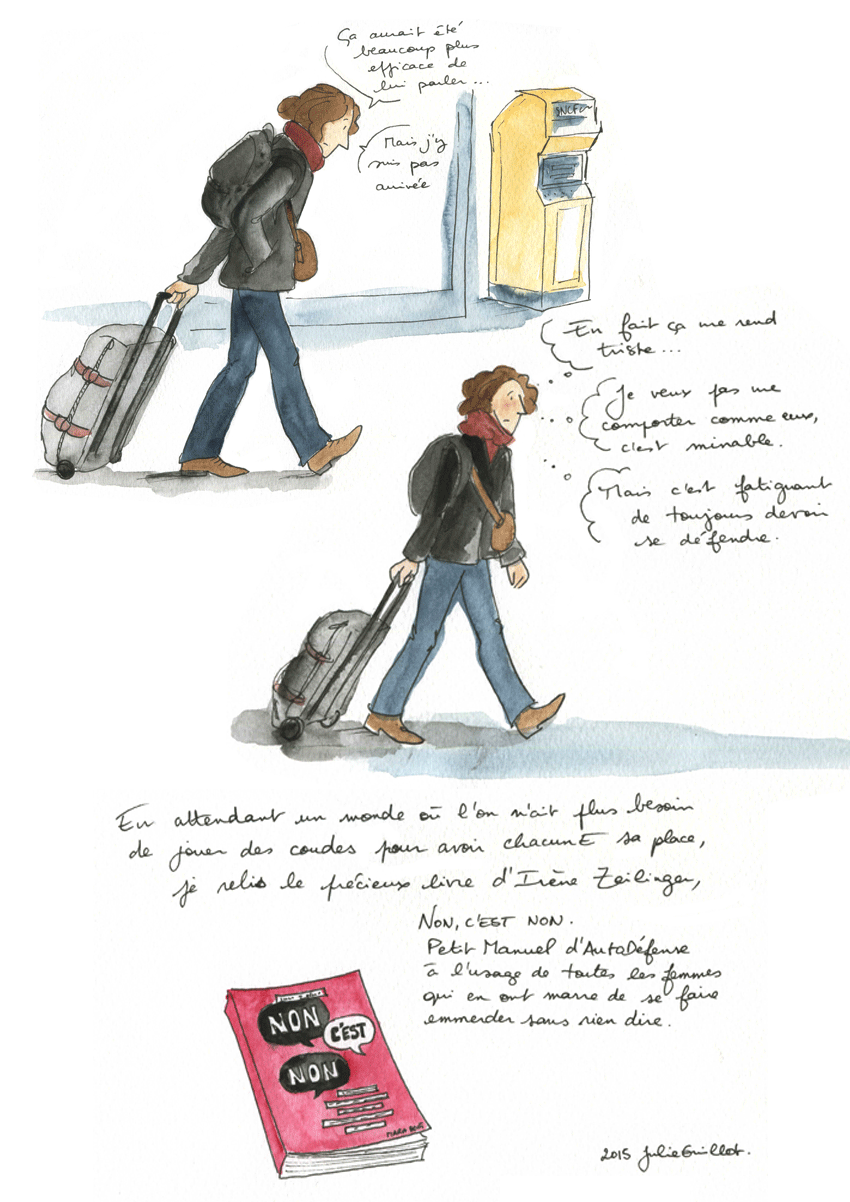 Ça aurait été
beaucoup plus
efficace de
lui parler...
Mais j'y
suis pas
arrivée
SNCF
En fait ça me rend
triste...
Je veux pas me
comporter comme eux,
c'est minable.
Mais c'est fatiguant
de toujours devoir
se défendre.
En attendant un monde où l'on n'ait plus besoin
de jouer des coudes pour avoir chacunE sa place,
je relis le précieux livre d'Irène Zeilinger,
NON, C'EST NON.
Petit Manuel d'AutoDéfense
à l'usage de toutes les femmes
qui en ont marre de se faire
emmerder sans rien dire.
NON
C'EST
NON
2015 Julie Guillot.